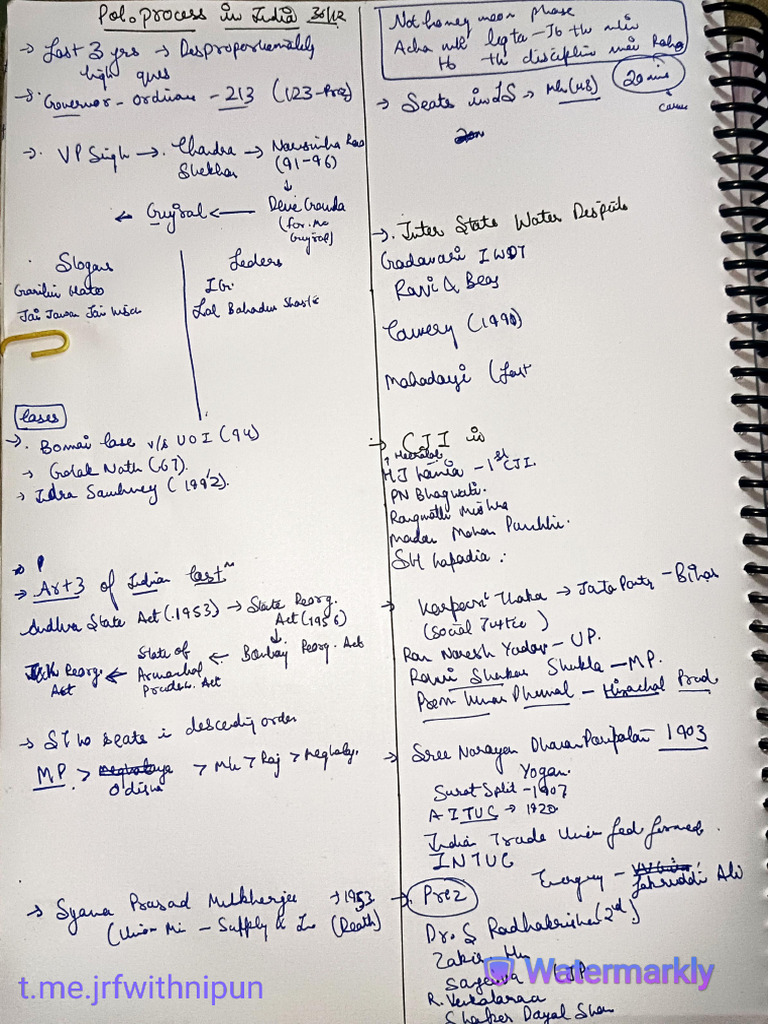 Pol. process in India 30/12
→ Last 3 yrs → Desproportionately
high ques
→ Governor - ordinan - 213 (123 - Prez)
→. VP Singh → Chandra Shekhar → Narsimha Rao (91-96)
↓
← Gujral ← Deve Gowda
(for. Mi Gujral)
Slogans
Garibi Hatao
Jai Jawan Jai
Leders
IG.
Lal Bahadur Shast
Cases
→. Bomai Case v/s UOI (94)
→ Golak Nath (67).
→ Idra Sawhney (1992).
→ Art 3 of Indian Const
Andhra State Act (1953) → State Reorg. Act (1956)
↓
J&K Reorg. Act ← State of Arunachal Pradesh. Act ← Bombay Reorg. Act
→ ST no seats i descendig order
MP > Odisha > Mh > Raj > Meghalay.
→ Syama Prasad Mulkherjee → 1953 (Death)
(Union Mi - Supply &
Not honey moon phase
Acha nhi lgta - Jb th nhi
Hb th discipline nhi Raha
→ Seats in LS → Mh (48) 20 mins
→. Inter State Water Desputs
Godavari IWDT
Ravi & Beas
Cauvery (1990)
Mahadayi (Last
CJI in
HJ Kania - 1st CJI.
PN Bhagwati.
Rangnath Mishra
Madan Mohan Punchhi.
SH Kapadia.
→ Karpuri Thakur → Jata Party - Bihar
(Social Justice)
Ram Naresh Yadav - UP.
Ravi Shankar Shukla - MP.
Prem Kumar Dhumal - Himachal Prad
→ Sree Narayan Dharam Paripalan 1903
Yogam.
Surat Split - 1907
AITUC → 1920
Indian Trade Union fed formed.
INTUC
Emergency - Fakruddi Ali
→ Prez
Dr. S Radhakrishn (2nd)
Zakir Hu
R. Venkataraa
Shanker Dayal Shar
t.me.jrfwithnipun
Watermarkly